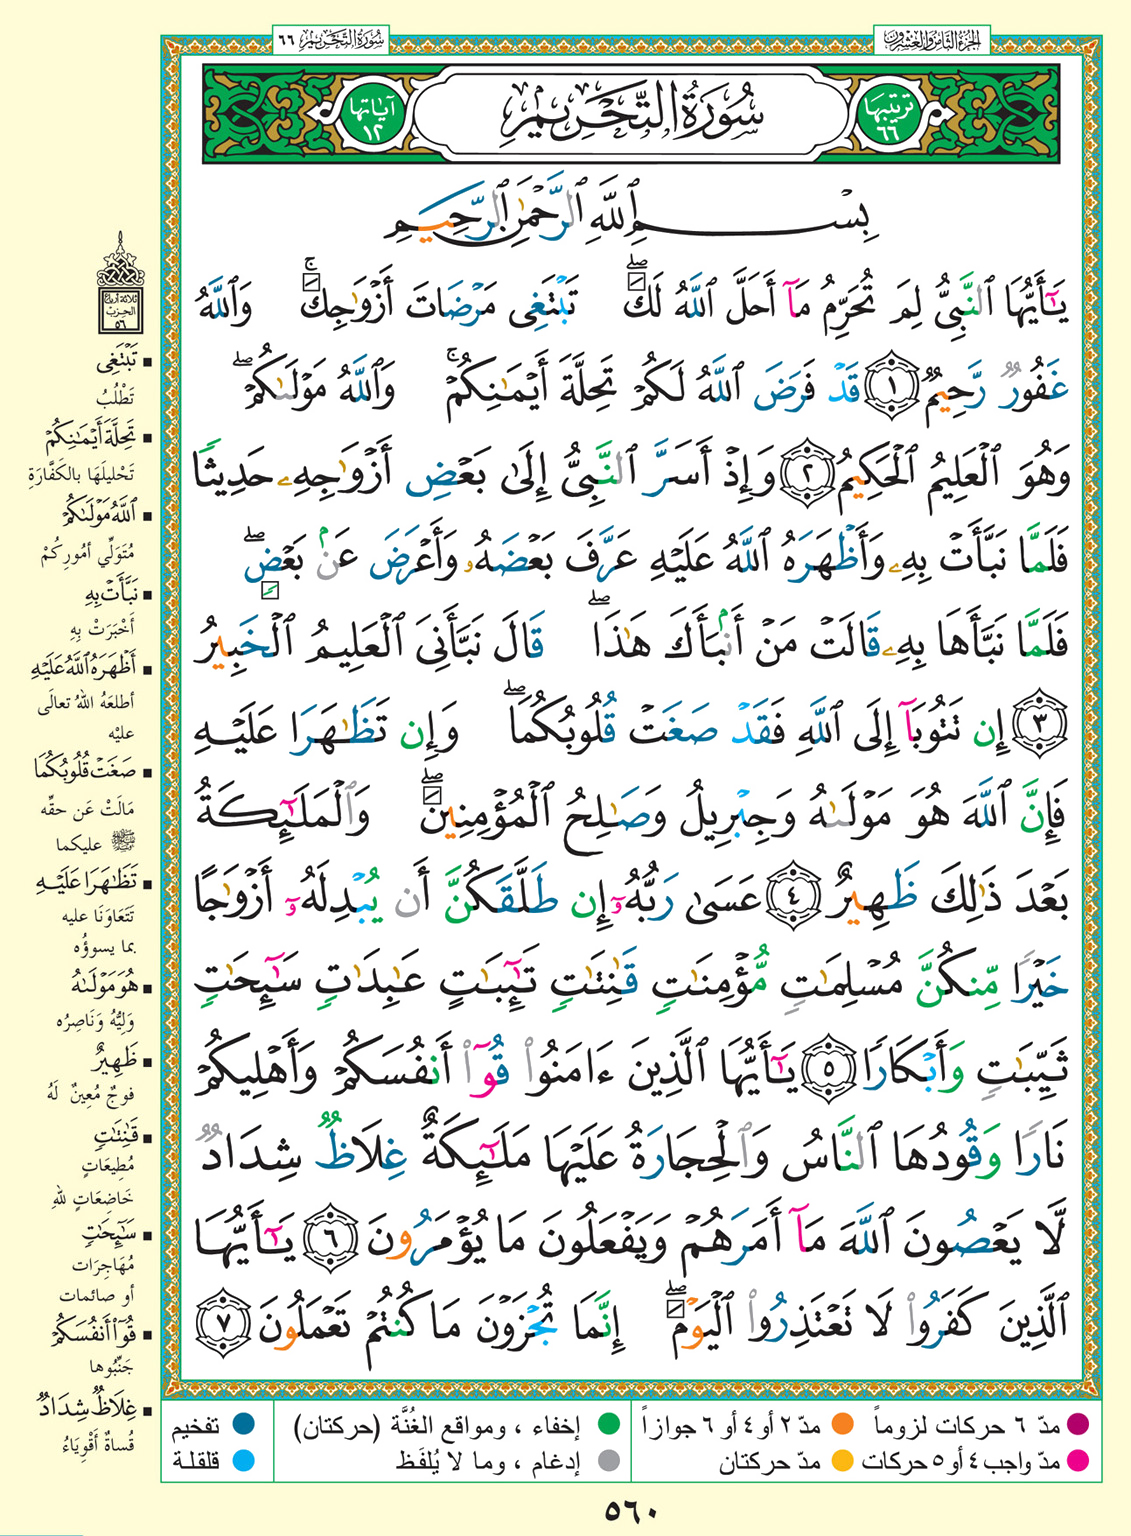 الجزء الثامن والعشرون
سُورَةُ التَّحْرِيمِ ٦٦
ترتيبها
٦٦
سُورَةُ التَّحْرِيمِ
آياتها
١٢
بِسْمِ ٱللَّهِ ٱلرَّحْمَٰنِ ٱلرَّحِيمِ
يَٰٓأَيُّهَا ٱلنَّبِيُّ لِمَ تُحَرِّمُ مَآ أَحَلَّ ٱللَّهُ لَكَۖ تَبْتَغِى مَرْضَاتَ أَزْوَٰجِكَۚ وَٱللَّهُ
غَفُورٌ رَّحِيمٌ ١ قَدْ فَرَضَ ٱللَّهُ لَكُمْ تَحِلَّةَ أَيْمَٰنِكُمْۚ وَٱللَّهُ مَوْلَىٰكُمْۖ
وَهُوَ ٱلْعَلِيمُ ٱلْحَكِيمُ ٢ وَإِذْ أَسَرَّ ٱلنَّبِىُّ إِلَىٰ بَعْضِ أَزْوَٰجِهِۦ حَدِيثًا
فَلَمَّا نَبَّأَتْ بِهِۦ وَأَظْهَرَهُ ٱللَّهُ عَلَيْهِ عَرَّفَ بَعْضَهُۥ وَأَعْرَضَ عَنۢ بَعْضٍۖ
فَلَمَّا نَبَّأَهَا بِهِۦ قَالَتْ مَنْ أَنۢبَأَكَ هَٰذَاۖ قَالَ نَبَّأَنِىَ ٱلْعَلِيمُ ٱلْخَبِيرُ
٣ إِن تَتُوبَآ إِلَى ٱللَّهِ فَقَدْ صَغَتْ قُلُوبُكُمَاۖ وَإِن تَظَٰهَرَا عَلَيْهِ
فَإِنَّ ٱللَّهَ هُوَ مَوْلَىٰهُ وَجِبْرِيلُ وَصَٰلِحُ ٱلْمُؤْمِنِينَۖ وَٱلْمَلَٰٓئِكَةُ
بَعْدَ ذَٰلِكَ ظَهِيرٌ ٤ عَسَىٰ رَبُّهُۥٓ إِن طَلَّقَكُنَّ أَن يُبْدِلَهُۥٓ أَزْوَٰجًا
خَيْرًا مِّنكُنَّ مُسْلِمَٰتٍ مُّؤْمِنَٰتٍ قَٰنِتَٰتٍ تَٰٓئِبَٰتٍ عَٰبِدَٰتٍ سَٰٓئِحَٰتٍ
ثَيِّبَٰتٍ وَأَبْكَارًا ٥ يَٰٓأَيُّهَا ٱلَّذِينَ ءَامَنُوا۟ قُوٓا۟ أَنفُسَكُمْ وَأَهْلِيكُمْ
نَارًا وَقُودُهَا ٱلنَّاسُ وَٱلْحِجَارَةُ عَلَيْهَا مَلَٰٓئِكَةٌ غِلَاظٌ شِدَادٌ
لَّا يَعْصُونَ ٱللَّهَ مَآ أَمَرَهُمْ وَيَفْعَلُونَ مَا يُؤْمَرُونَ ٦ يَٰٓأَيُّهَا
ٱلَّذِينَ كَفَرُوا۟ لَا تَعْتَذِرُوا۟ ٱلْيَوْمَۖ إِنَّمَا تُجْزَوْنَ مَا كُنتُمْ تَعْمَلُونَ ٧
ثلاثة أرباع
الحزب
٥٦
تَبْتَغِى
تَطْلُبُ
تَحِلَّةَ أَيْمَٰنِكُمْ
تَحْلِيلَهَا بالكَفَّارَةِ
ٱللَّهُ مَوْلَىٰكُمْ
مُتَوَلِّي أمُورِكُمْ
نَبَّأَتْ بِهِ
أَخْبَرَتْ بِهِ
أَظْهَرَهُ ٱللَّهُ عَلَيْهِ
أطلعَهُ اللهُ تعالَى
عليْه
صَغَتْ قُلُوبُكُمَا
مَالَتْ عَن حقِّه
ﷺ عليكما
تَظَٰهَرَا عَلَيْهِ
تَتَعَاوَنَا عليه
بما يسوؤُه
هُوَ مَوْلَىٰهُ
وَلِيُّهُ وَنَاصِرُه
ظَهِيرٌ
فوجٌ مُعِينٌ لَهُ
قَٰنِتَٰتٍ
مُطِيعَاتٍ
خَاضِعَاتٍ للهِ
سَٰٓئِحَٰتٍ
مُهَاجِرَات
أو صائمات
قُوٓا۟ أَنفُسَكُمْ
جَنِّبُوها
غِلَاظٌ شِدَادٌ
قُساةٌ أقْوِيَاءُ
مدّ ٦ حركات لزوماً
مدّ ٢ أو ٤ أو ٦ جوازاً
إخفاء ، ومواقع الغُنَّة (حركتان)
تفخيم
مدّ واجب ٤ أو ٥ حركات
مدّ حركتان
إدغام ، وما لا يُلفَظ
قلقلة
٥٦٠